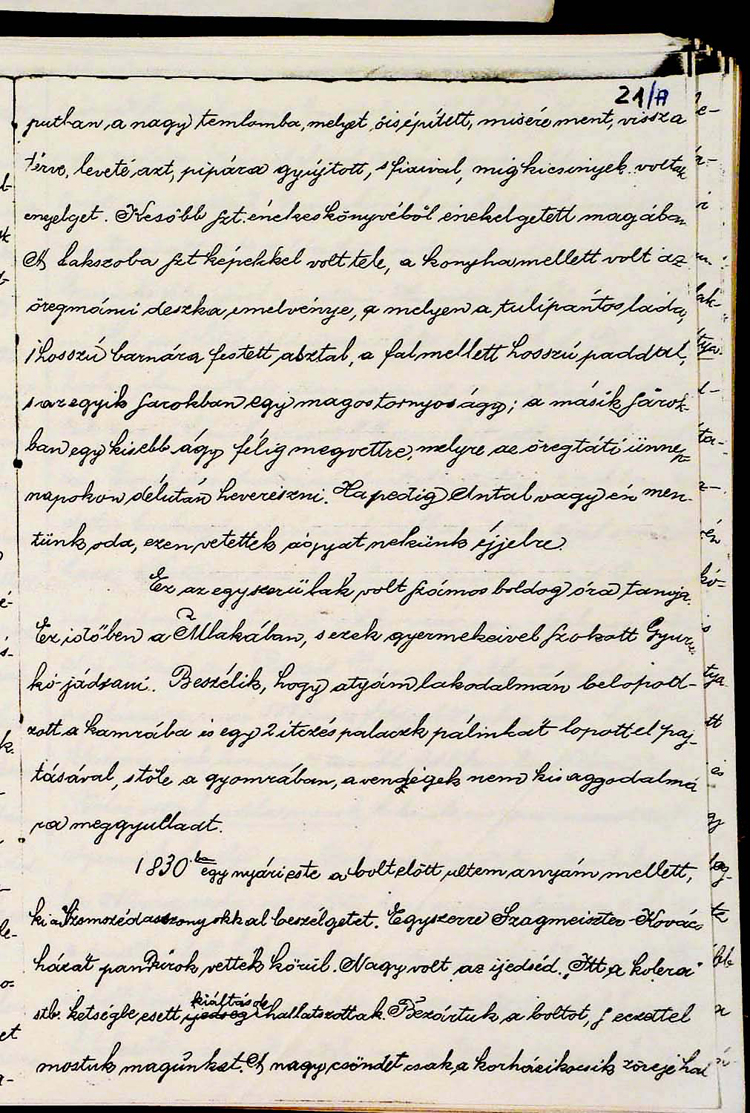 21/A
putban, a nagy temlomba, melyet ő is épített, misére ment, vissza
térve, leveté azt, pipára gyújtott, s fiaival, mig kicsinyek voltak
enyelget. Később szt. énekeskönyvéből énekelgetett magában
A lakszoba szt képekkel volt tele, a konyha mellett volt az
öregmámi deszka emelvénye, a melyen a tulipántos láda,
1 hosszú barnára festett asztal, a fal mellett hosszú paddal,
s az egyik sarokban egy magos tornyos ágy; a másik sarok-
ban egy kisebb ágy félig megvetve, melyre az öregtáti ünnep-
napokon délután heverészni. Ha pedig Antal vagy én men-
tünk oda, ezen vetettek ágyat nekünk éjjelre.
Ez az egyszerű lak volt számos boldog óra tanyja.
Ez időben a Mlakában, s ezek gyermekeivel szokott Gyur
kó játszani. Beszélik, hogy atyám lakodalmán belopód-
zott a kamrába is egy 2 itczés palaczk pálinkát lopott el paj-
tásával, s tőle a gyomrában, a vendégek nem kis aggodalmá
ra meggyulladt.
1830 ba egy nyári este a bolt előtt ültem anyám mellett,
ki a szomszédasszonyokkal beszélgetet. Egyszerre Szagmeiszter-Kovács
házát pandúrok vették körül. Nagy volt az ijedséd. "Itt a kolera"
stb. kétségbe esett kiáltások hallatszottak. Bezártuk a boltot, s eczettel
mostuk magunkat. A nagy csöndet csak a korházi kocsik zöreje hal